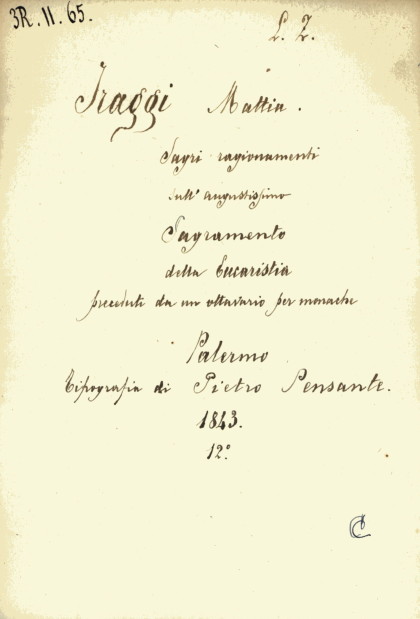 3R.11.65.
L. 7.
Iraggi Mattia.
Sagri ragionamenti
sull' augustissimo
Sagramento
della Eucaristia
preceduti da un ottavario per monache
Palermo
Tipografia di Pietro Pensante.
1843.
12°
C